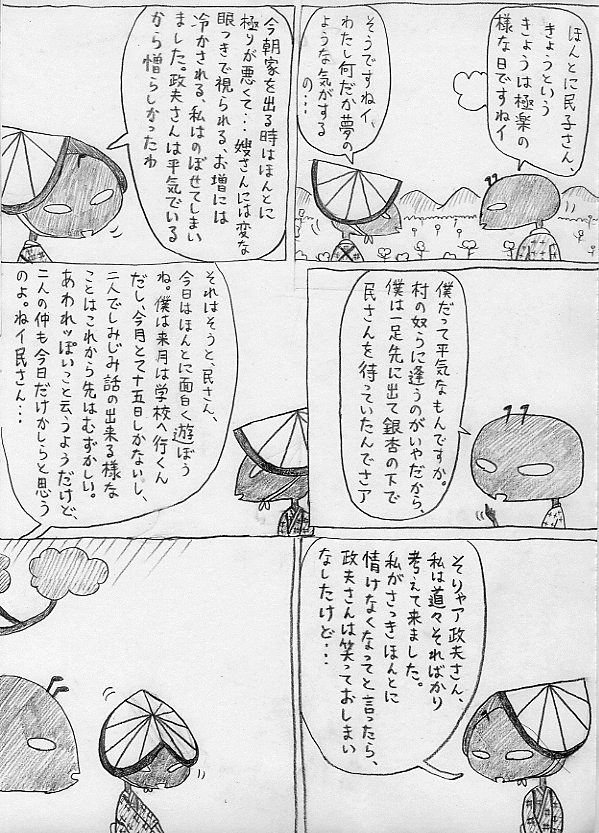 ほんとに民子さん、
きょうという
きょうは極楽の
様な日ですねイ
そうですねイ、
わたし何だか夢の
ような気がする
の…
今朝家を出る時はほんとに
極りが悪くて…嫂さんには変な
眼つきで視られる、お増には
冷かされる、私はのぼせてしまい
ました。政夫さんは平気でいる
から憎らしかったわ
僕だって平気なもんですか。
村の奴らに逢うのがいやだから、
僕は一足先に出て銀杏の下で
民さんを待っていたんでさア
それはそうと、民さん、
今日はほんとに面白く遊ぼう
ね。僕は来月は学校へ行くん
だし、今月とて十五日しかないし、
二人でしみじみ話の出来る様な
ことはこれから先はむずかしい。
あわれッぽいこと云うようだけど、
二人の仲も今日だけかしらと思う
のよ。ねイ民さん…
そりゃア政夫さん、
私は道々そればかり
考えて来ました。
私がさっきほんとに
情けなくなってと言ったら、
政夫さんは笑っておしまい
なしたけど…